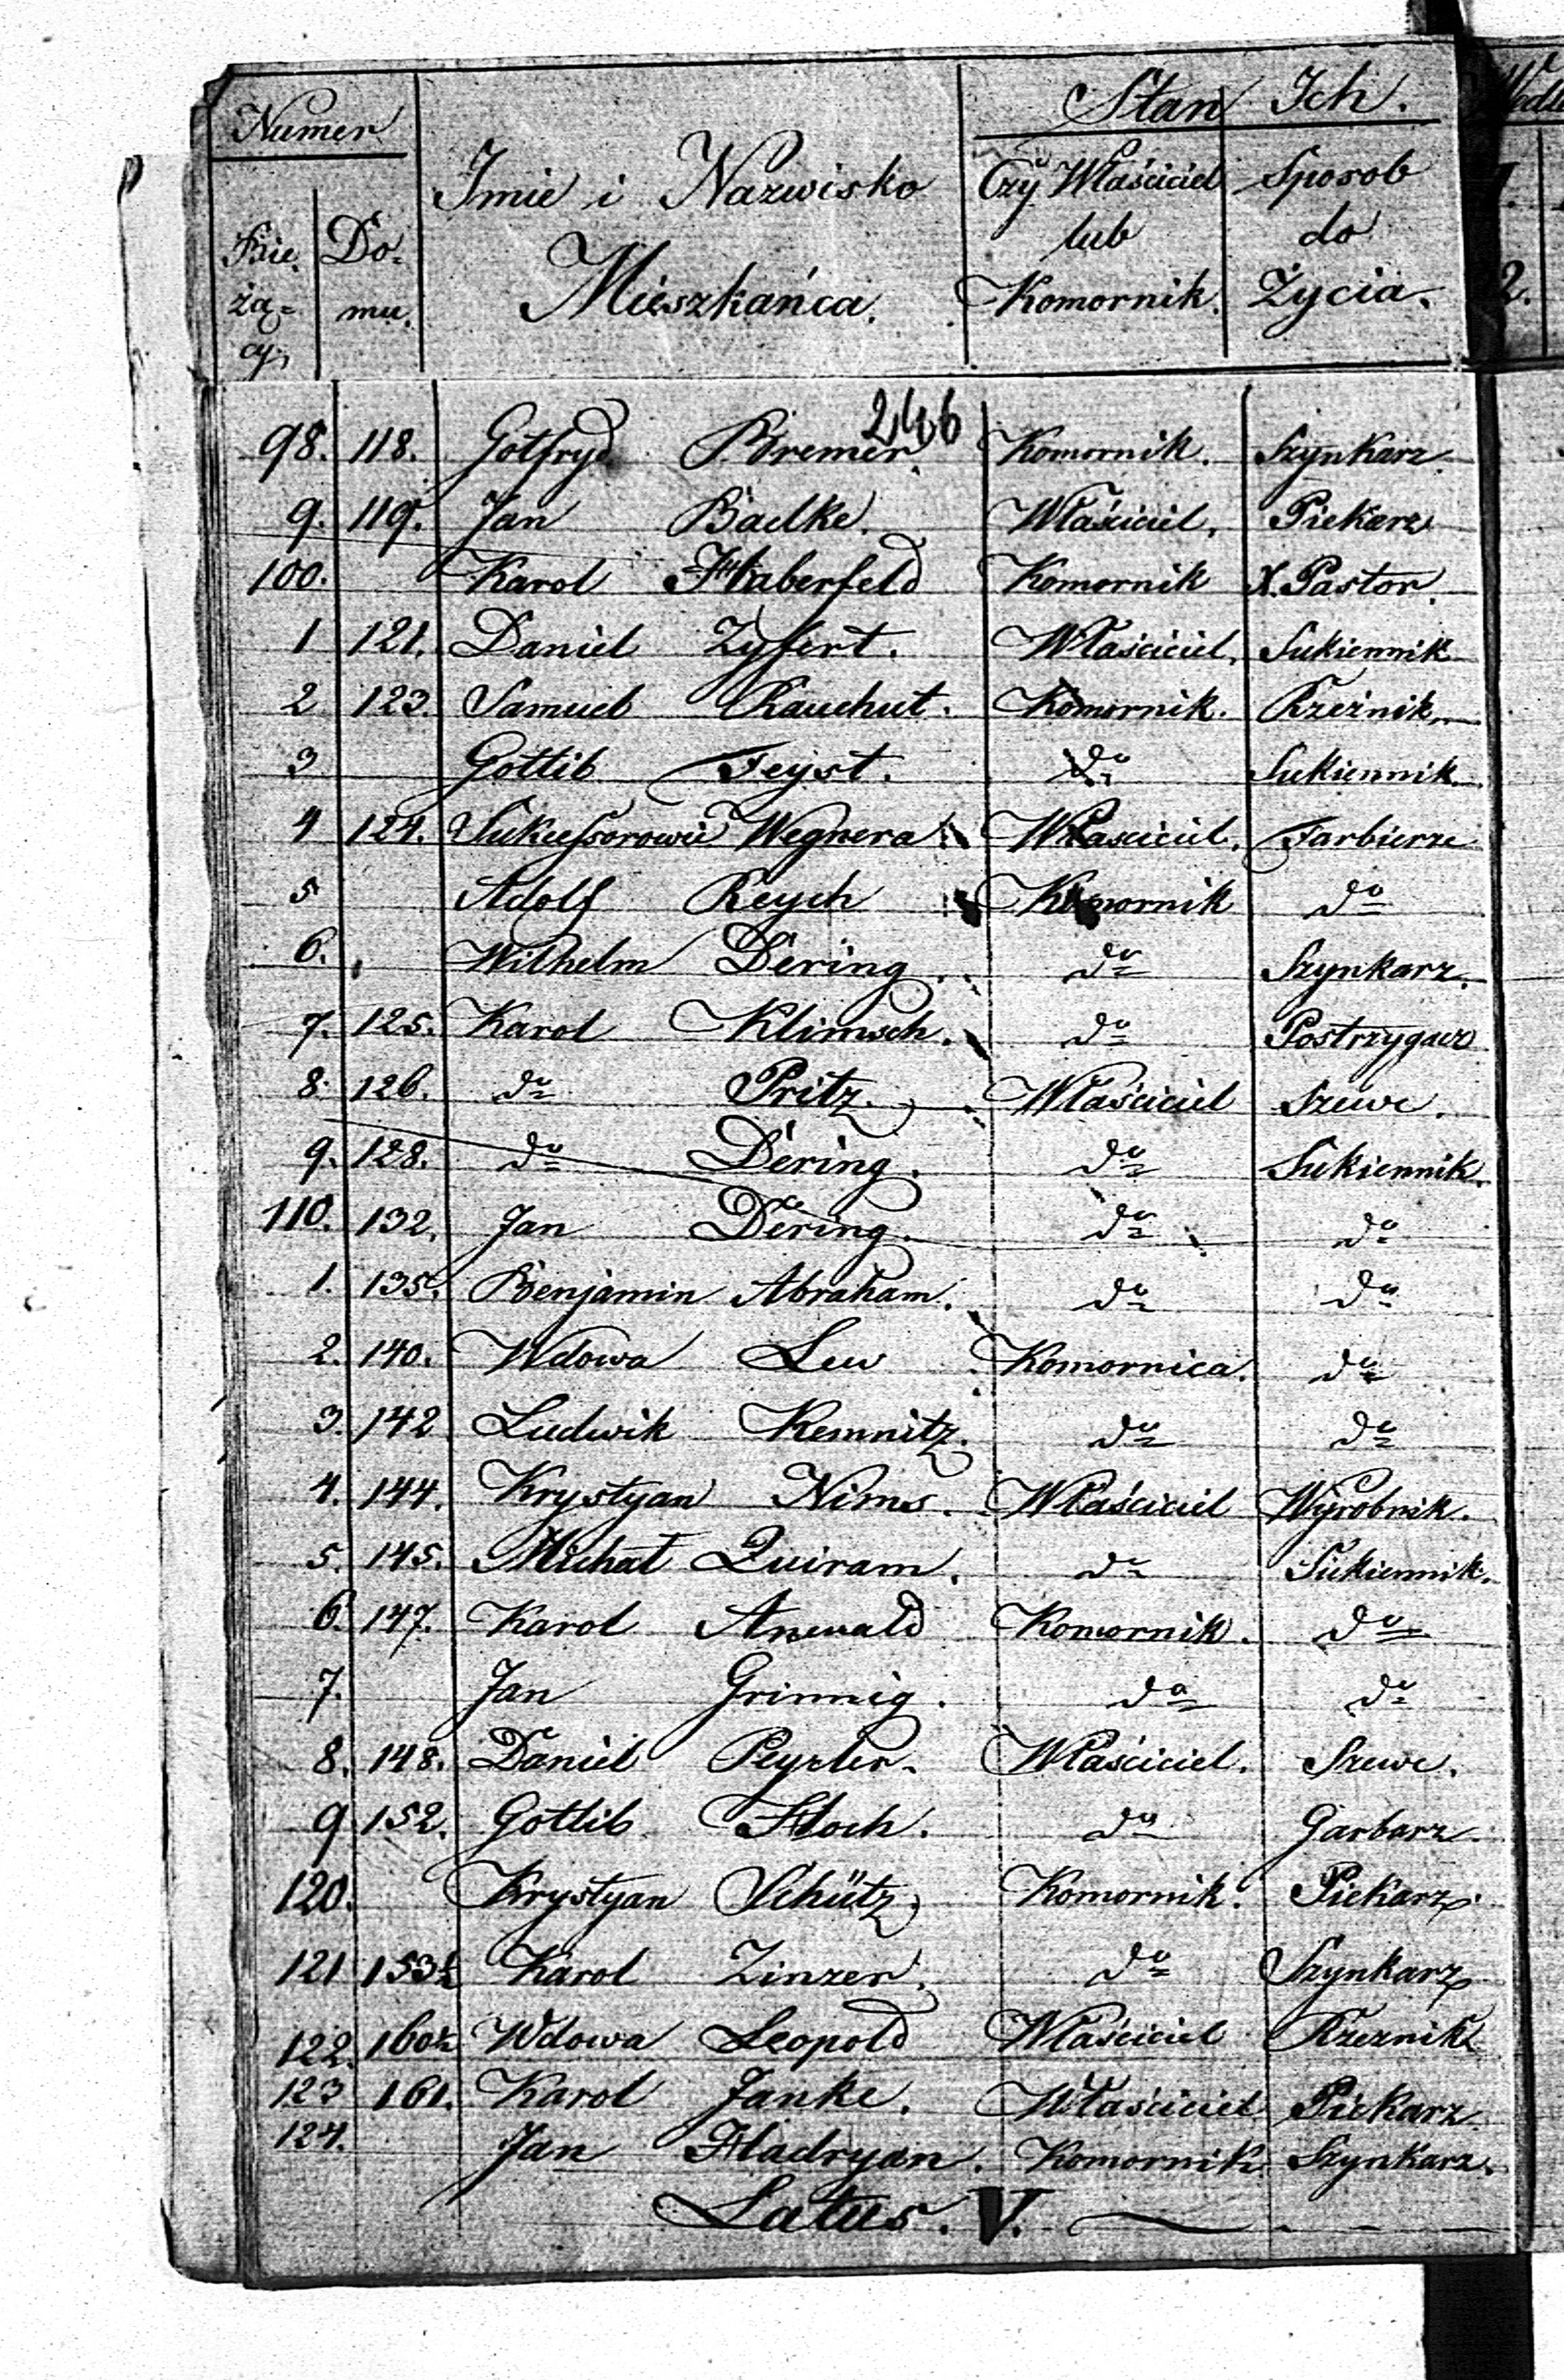 Numer
Stan Ich.
Imie i Nazwisko Mieszkańca.
Bie. żą= cy,
Do= mu.
Czy Właściciel lub Komornik.
Sposob do Życia.
2.
246
98. 118. Gotfryd Bremer. Komornik. Szynkarz.
9. 119. Jan Badke. Właściciel. Piekarz
100. Karol Haberfeld Komornik X. Pastor.
1 121. Daniel Zyfert. Właściciel. Sukiennik
2 123. Samuel Rauchut. Komornik. Rzeźnik
3 Gottlib Feyst. do Sukiennik
4 124. Sukcessorowie Wegnera Właściciel. Farbierze
5 Adolf Reych Komornik do
6. Wilhelm Dering do Szynkarz.
7. 125. Karol Klimsch. do Postrzygacz
8. 126. do Pritz. Właściciel Szewc.
9. 128. do Dering. do Sukiennik.
110. 132. Jan Dering. do do
1. 135. Benjamin Abraham. do do
2. 140. Wdowa Lew Komornica. do
3. 142 Ludwik Kemnitz. do do
4. 144. Krystyan Nims. Właściciel Wyrobnik.
5. 145. Michał Quiram. do Sukiennik.
6. 147. Karol Anwald Komornik. do
7. Jan Grinnig. do do
8. 148. Daniel Właściciel. Szewc.
9 152. Gotlib Hoch. do Garbarz.
120. Krystyan Schütz Komornik. Piekarz
121 153½ Karol Zinzer. do Szynkarz
122. 160½ Wdowa Leopold Właściciel Rzeznik
123 161. Karol Janke. Właściciel Piekarz
124. Jan Hadryan. Komornik Szynkarz.
Latus. V.